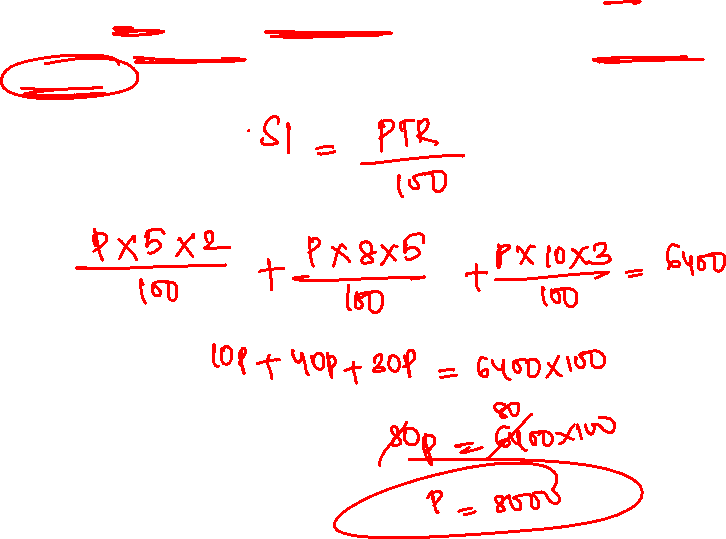 SI = PTR / 100
P×5×2 / 100 + P×8×5 / 100 + P×10×3 / 100 = 6400
10P + 40P + 30P = 6400×100
80P = 6400×100 80
P = 8000